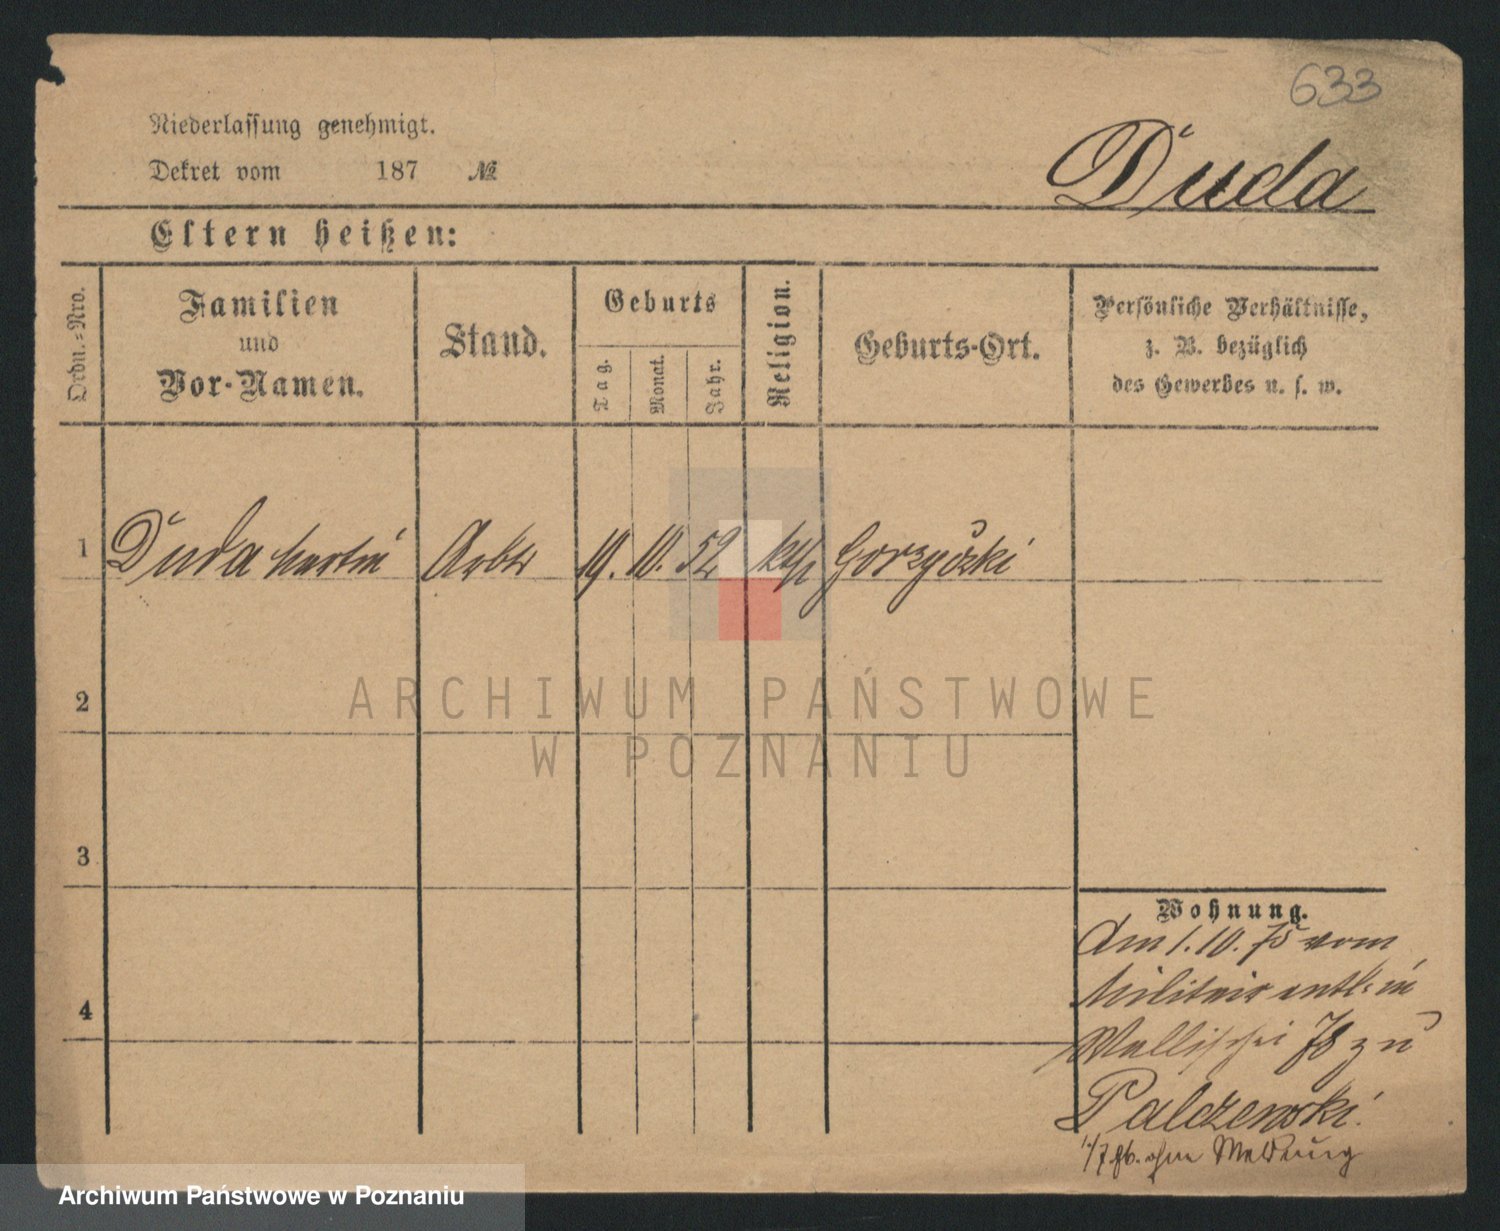 633
Niederlassung genehmigt.
Dekret vom 187 №
Duda
Eltern heißen:
Ordn.=Nro.
Familien
und
Vor-Namen.
Stand.
Geburts
Tag.
Monat.
Jahr.
Religion.
Geburts-Ort.
Persönliche Verhältnisse,
z. B. bezüglich
des Gewerbes u. s. w.
1 Duda Martin Arbtr 19. 10. 52 kth Gorzyczki
2
3
4
Wohnung.
Am 1. 10. 75 vom
Militair entl: in
Wallischei 78 zu
Palczewski.
1/7 76. ohne Meldung
ARCHIWUM PAŃSTWOWE
W POZNANIU
Archiwum Państwowe w Poznaniu